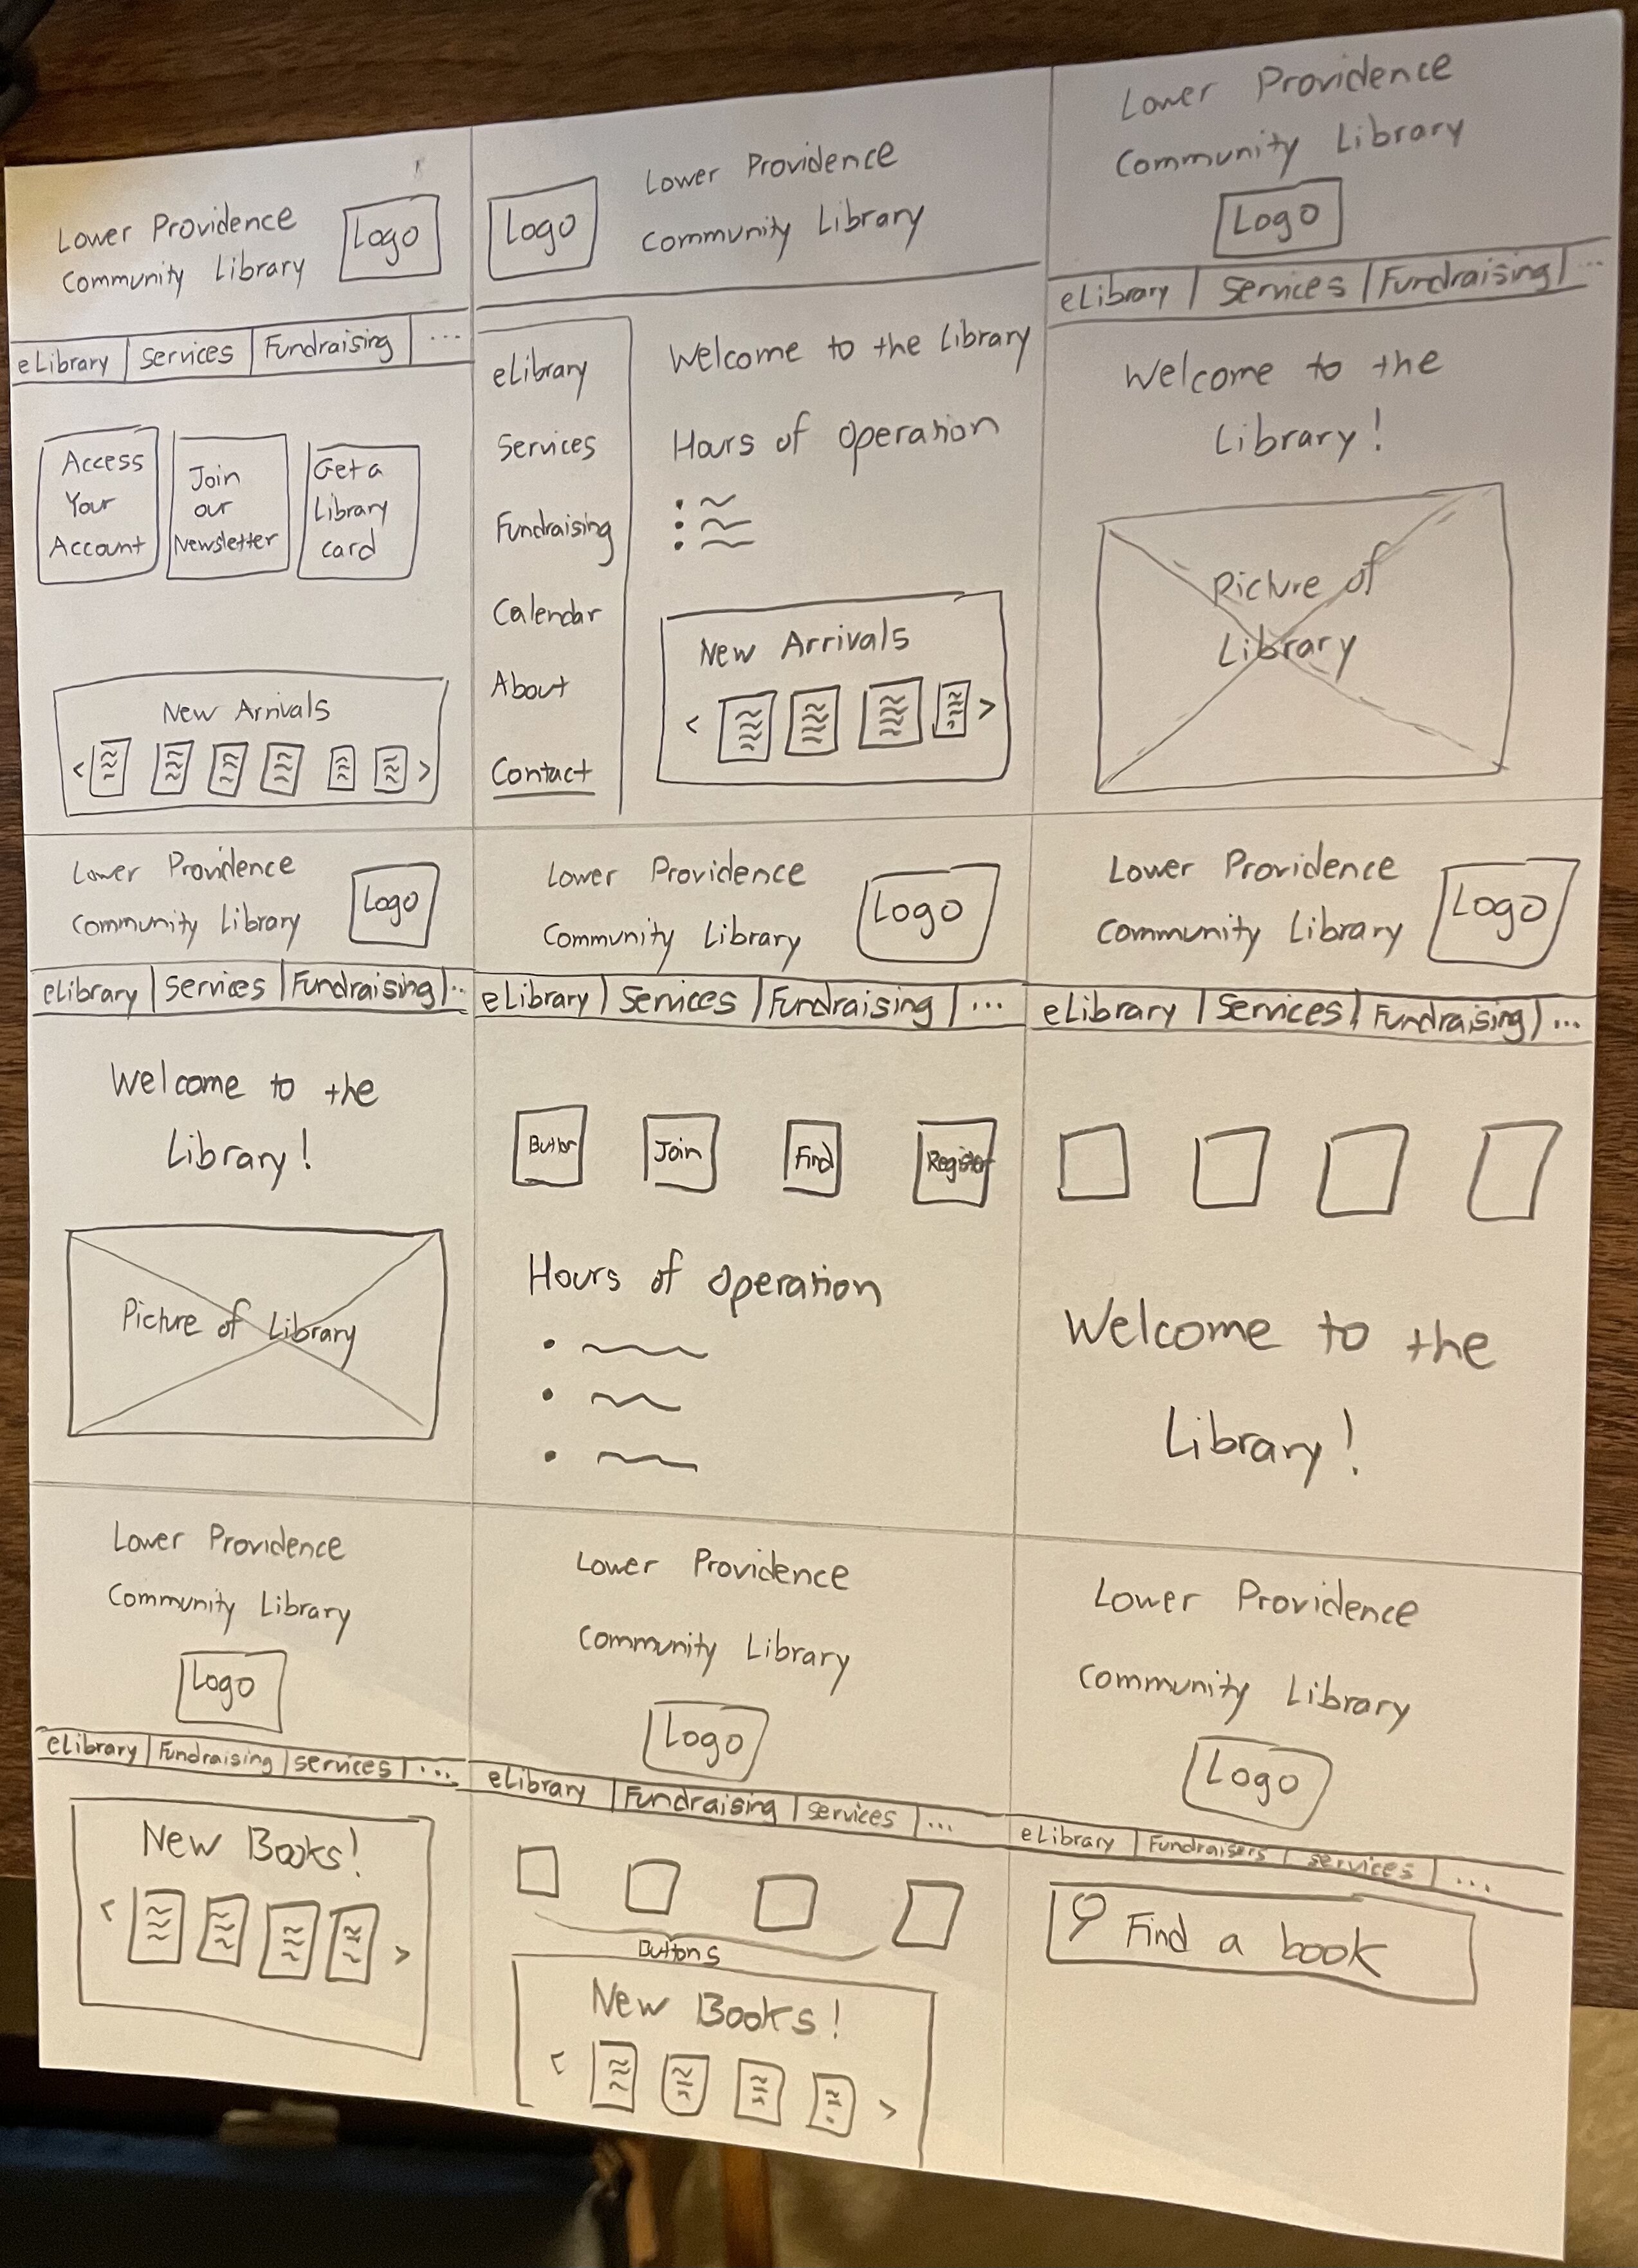 Lower Providence
Community Library
Logo
eLibrary
Services
Fundraising
...
Access
Your
Account
Join
our
Newsletter
Get a
Library
card
New Arrivals
<
>
Logo
Lower Providence
Community Library
eLibrary
Services
Fundraising
Calendar
About
Contact
Welcome to the Library
Hours of operation
New Arrivals
<
>
Lower Providence
Community Library
Logo
eLibrary | Services | Fundraising | ...
Welcome to the
Library!
Picture of
Library
Lower Providence
Community Library
Logo
eLibrary | Services | Fundraising | ..
Welcome to the
Library!
Picture of Library
Lower Providence
Community Library
Logo
eLibrary | Services | Fundraising | ...
Button
Join
Find
Register
Hours of operation
Lower Providence
Community Library
Logo
eLibrary | Services | Fundraising | ...
Welcome to the
Library!
Lower Providence
Community Library
Logo
eLibrary | Fundraising | Services | ...
New Books!
<
>
Lower Providence
Community Library
Logo
eLibrary | Fundraising | Services | ...
Buttons
New Books!
<
>
Lower Providence
Community Library
Logo
eLibrary | Fundraisers | Services | ...
Find a book